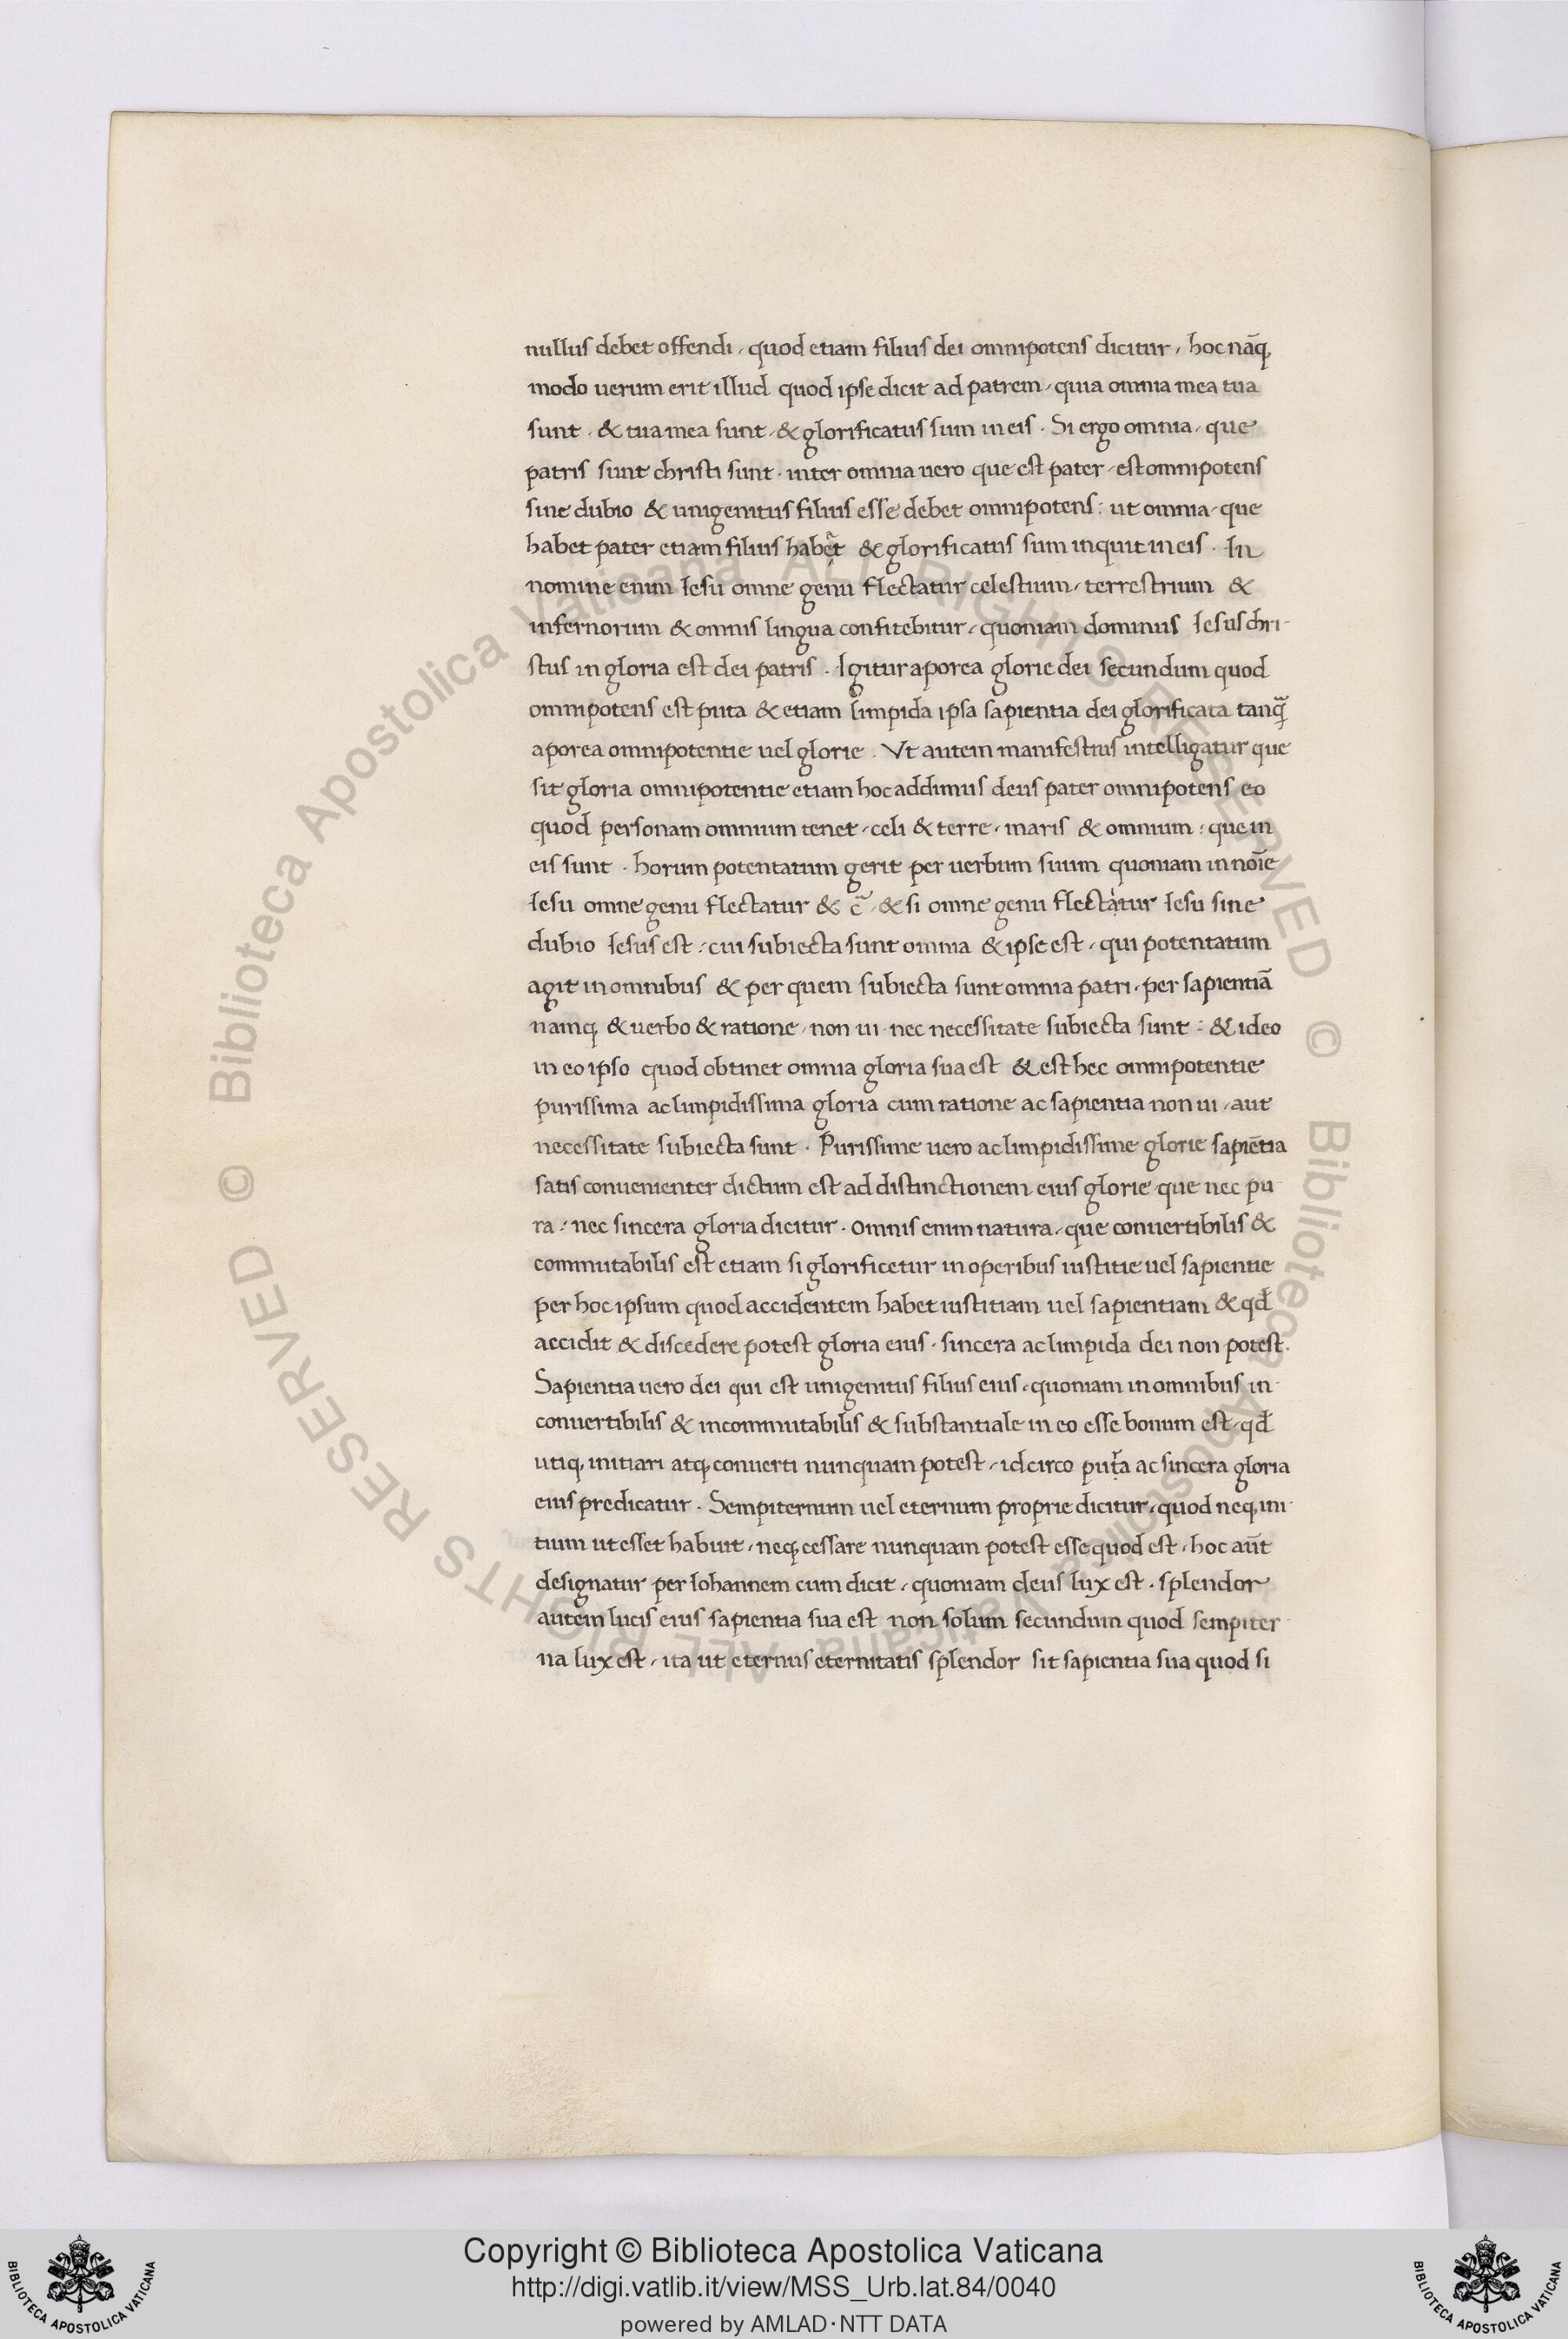 nullus debet offendi, quod etiam filius dei omnipotens dicitur, hoc nāq;
modo uerum erit illud quod ipse dicit ad patrem, quia omnia mea tua
sunt. & tua mea sunt, & glorificatus sum in eis. Si ergo omnia, que
patris sunt christi sunt. inter omnia uero que est pater, est omnipotens
sine dubio & unigenitus filius esse debet omnipotens: ut omnia, que
habet pater etiam filius habeat & glorificatus sum inquit in eis. In
nomine enim Iesu omne genu flectatur celestium, terrestrium &
infernorum & omnis lingua confitebitur, quoniam dominus Iesus chri-
stus in gloria est dei patris. Igitur aporea glorie dei secundum quod
omnipotens est puta & etiam limpida ipsa sapientia dei glorificata tanq̃
aporea omnipotentie uel glorie. Vt autem manifestius intelligatur que
sit gloria omnipotentie etiam hoc addimus deus pater omnipotens eo
quod personam omnium tenet, celi & terre, maris & omnium: que in
eis sunt. horum potentatum gerit per uerbum suum quoniam in noīe
Iesu omne genu flectatur & c̃, & si omne genu flectatur Iesu sine
dubio Iesus est: cui subiecta sunt omnia & ipse est, qui potentatum
agit in omnibus & per quem subiecta sunt omnia patri, per sapientiā
namq; & uerbo & ratione, non ui nec necessitate subiecta sunt: & ideo
in eo ipso quod obtinet omnia gloria sua est & est hec omnipotentie
purissima ac limpidissima gloria cum ratione ac sapientia non ui, aut
necessitate subiecta sunt. Purissime uero ac limpidissime glorie sapiētia
satis conuenienter dictum est ad distinctionem eius glorie que nec pu-
ra: nec sincera gloria dicitur. omnis enim natura, que conuertibilis &
commutabilis est etiam si glorificetur in operibus iustitie uel sapientie
per hoc ipsum quod accidentem habet iustitiam uel sapientiam & qđ
accidit & discedere potest gloria eius. sincera ac limpida dei non potest.
Sapientia uero dei qui est unigenitus filius eius, quoniam in omnibus in-
conuertibilis & incommutabilis & substantiale in eo esse bonum est, qđ
utiq; initiari atq; conuerti nunquam potest, idcirco pura ac sincera gloria
eius predicatur. Sempiternum uel eternum proprie dicitur, quod neq; ini-
tium ut esset habuit, neq; cessare nunquam potest esse quod est, hoc aūt
designatur per Iohannem cum dicit, quoniam deus lux est. splendor
autem lucis eius sapientia sua est non solum secundum quod sempiter-
na lux est, ita ut eternus eternitatis splendor sit sapientia sua quod si
© Biblioteca Apostolica Vaticana ALL RIGHTS RESERVED © Biblioteca Apostolica Vaticana ALL RIGHTS RESERVED
Copyright © Biblioteca Apostolica Vaticana
http://digi.vatlib.it/view/MSS_Urb.lat.84/0040
powered by AMLAD·NTT DATA
BIBLIOTECA APOSTOLICA VATICANA
BIBLIOTECA APOSTOLICA VATICANA